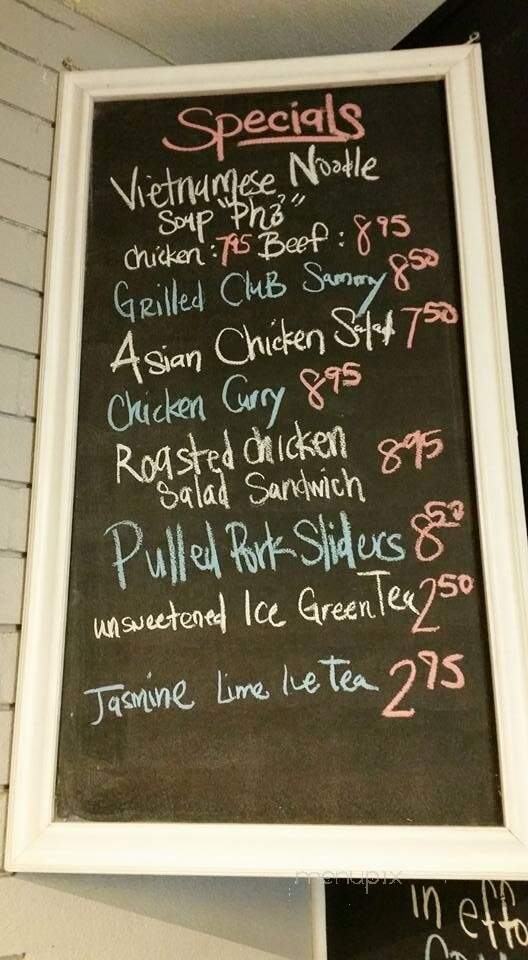 Specials
Vietnamese Noodle
Soup "Phở"
Chicken : 7.95 Beef : 8.95
Grilled Club Sammy 8.50
Asian Chicken Salad 7.50
Chicken Curry 8.95
Roasted chicken
Salad Sandwich 8.95
Pulled Pork Sliders 8.50
unsweetened Ice Green Tea 2.50
Jasmine Lime Ice Tea 2.75
menupix
in effo